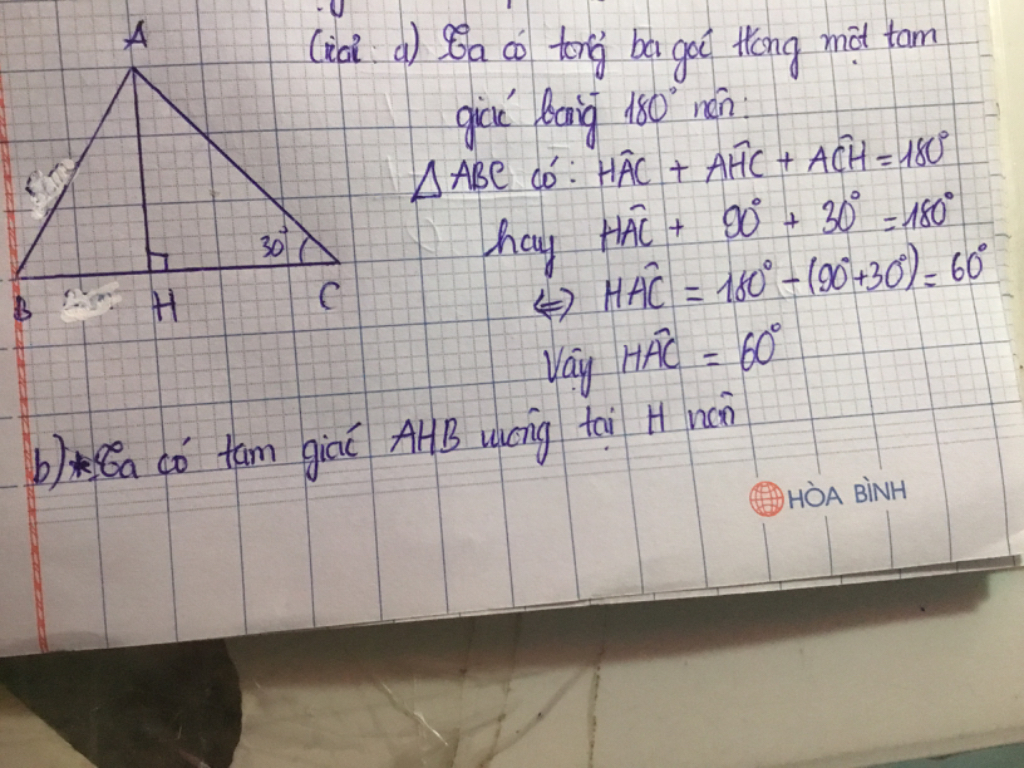 A
B
H
C
30°
Giải: a) Ta có tổng ba góc trong một tam
giác bằng 180° nên:
Δ ABC có: HÂC + AĤC + AĈH = 180°
hay HÂC + 90° + 30° = 180°
⇔ HÂC = 180° - (90°+30°) = 60°
Vậy HÂC = 60°
b) * Ta có tam giác AHB vuông tại H nên
HÒA BÌNH